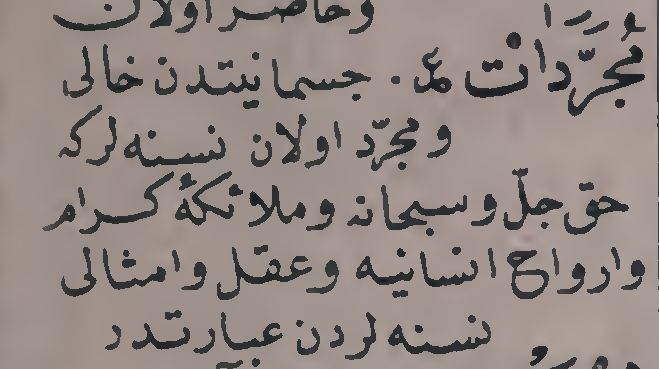 وحاضر اولان
مُجرّدات ع. جسمانیتدن خالی
ومجرّد اولان نسنه لرکه
حق جلّ وسبحانه وملائکهٔ کرام
وارواح انسانیه وعقل وامثالی
نسنه لردن عبارتدر